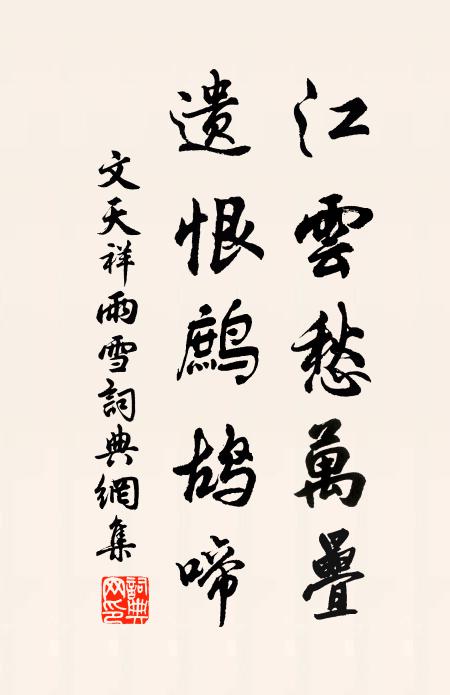 江雲愁萬疊
遺恨鷓鴣啼
文天祥雨雪詞典網集
詞典網印